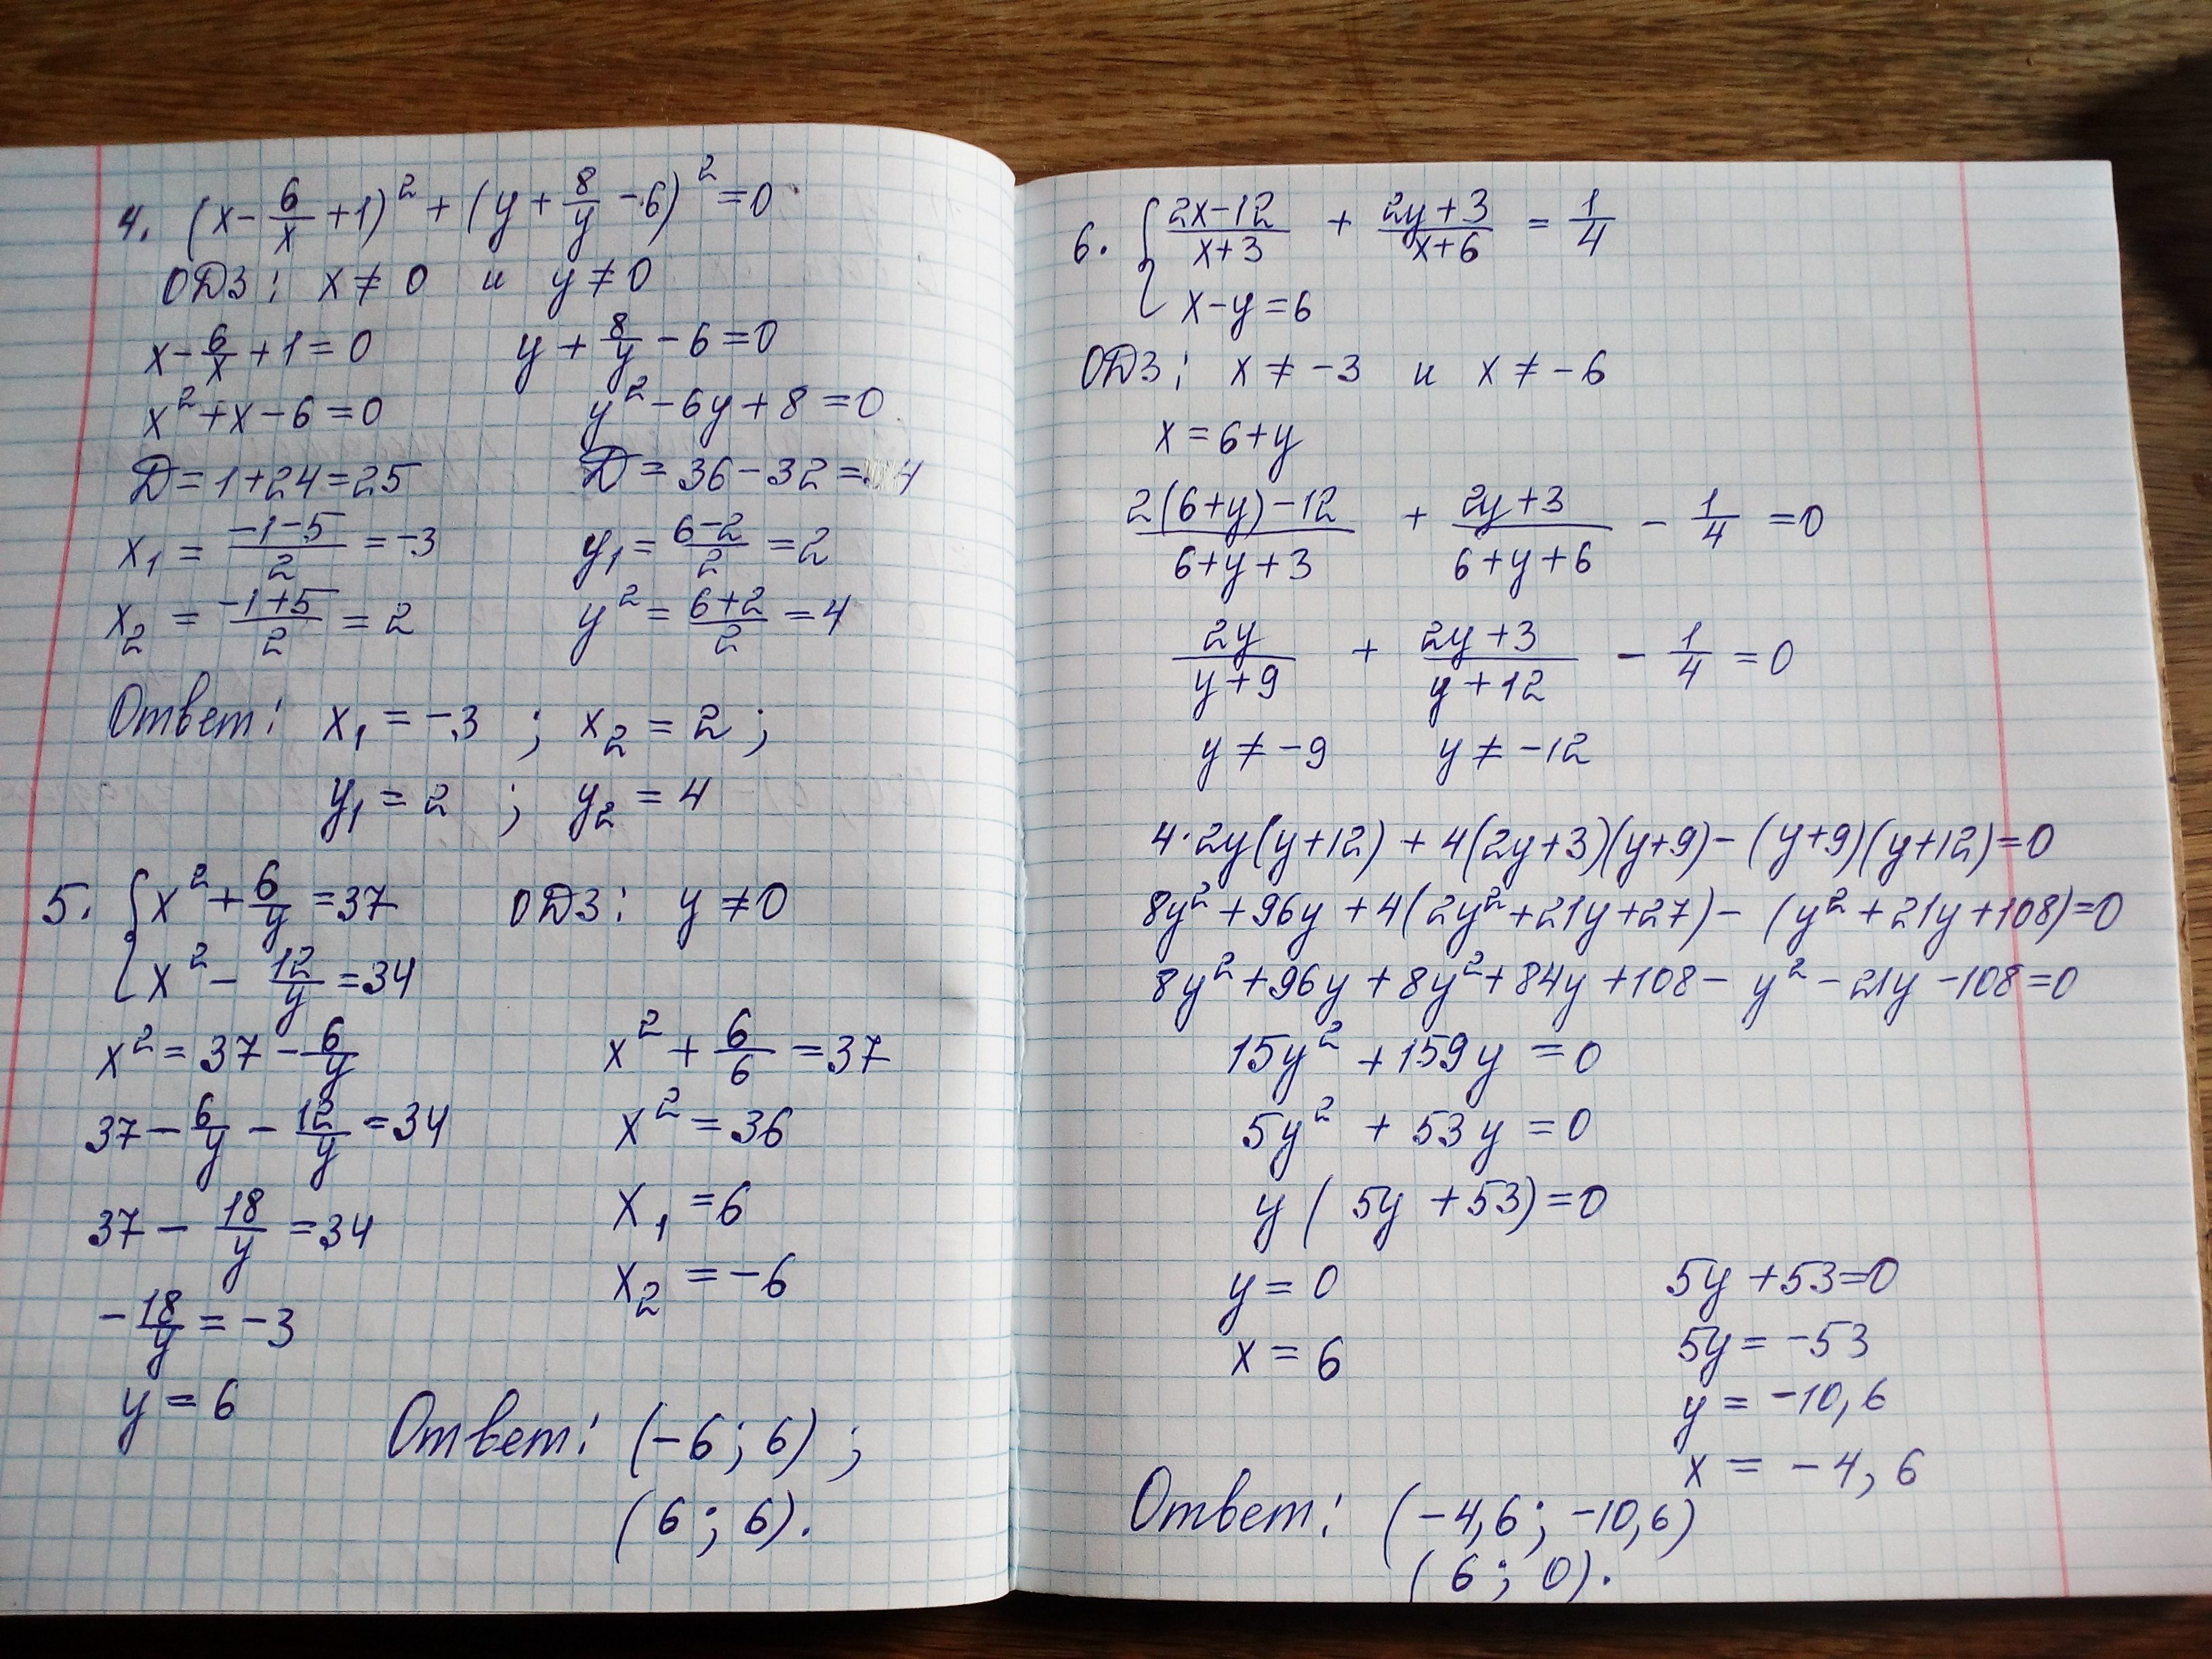 4. (x - 6/x + 1)² + (y + 8/y - 6)² = 0
ОДЗ: x ≠ 0 и y ≠ 0
x - 6/x + 1 = 0 y + 8/y - 6 = 0
x² + x - 6 = 0 y² - 6y + 8 = 0
Д = 1 + 24 = 25 Д = 36 - 32 = 4
x₁ = (-1-5)/2 = -3 y₁ = (6-2)/2 = 2
x₂ = (-1+5)/2 = 2 y² = (6+2)/2 = 4
Ответ: x₁ = -3 ; x₂ = 2 ;
y₁ = 2 ; y₂ = 4
5. { x² + 6/y = 37 ОДЗ: y ≠ 0
x² - 12/y = 34
x² = 37 - 6/y x² + 6/6 = 37
37 - 6/y - 12/y = 34 x² = 36
37 - 18/y = 34 x₁ = 6
-18/y = -3 x₂ = -6
y = 6 Ответ: (-6 ; 6) ;
(6 ; 6).
6. { (2x-12)/(x+3) + (2y+3)/(x+6) = 1/4
x - y = 6
ОДЗ: x ≠ -3 и x ≠ -6
x = 6 + y
(2(6+y)-12)/(6+y+3) + (2y+3)/(6+y+6) - 1/4 = 0
2y/(y+9) + (2y+3)/(y+12) - 1/4 = 0
y ≠ -9 y ≠ -12
4·2y(y+12) + 4(2y+3)(y+9) - (y+9)(y+12) = 0
8y² + 96y + 4(2y² + 21y + 27) - (y² + 21y + 108) = 0
8y² + 96y + 8y² + 84y + 108 - y² - 21y - 108 = 0
15y² + 159y = 0
5y² + 53y = 0
y(5y + 53) = 0
y = 0 5y + 53 = 0
x = 6 5y = -53
y = -10,6
x = -4,6
Ответ: (-4,6 ; -10,6)
(6 ; 0).